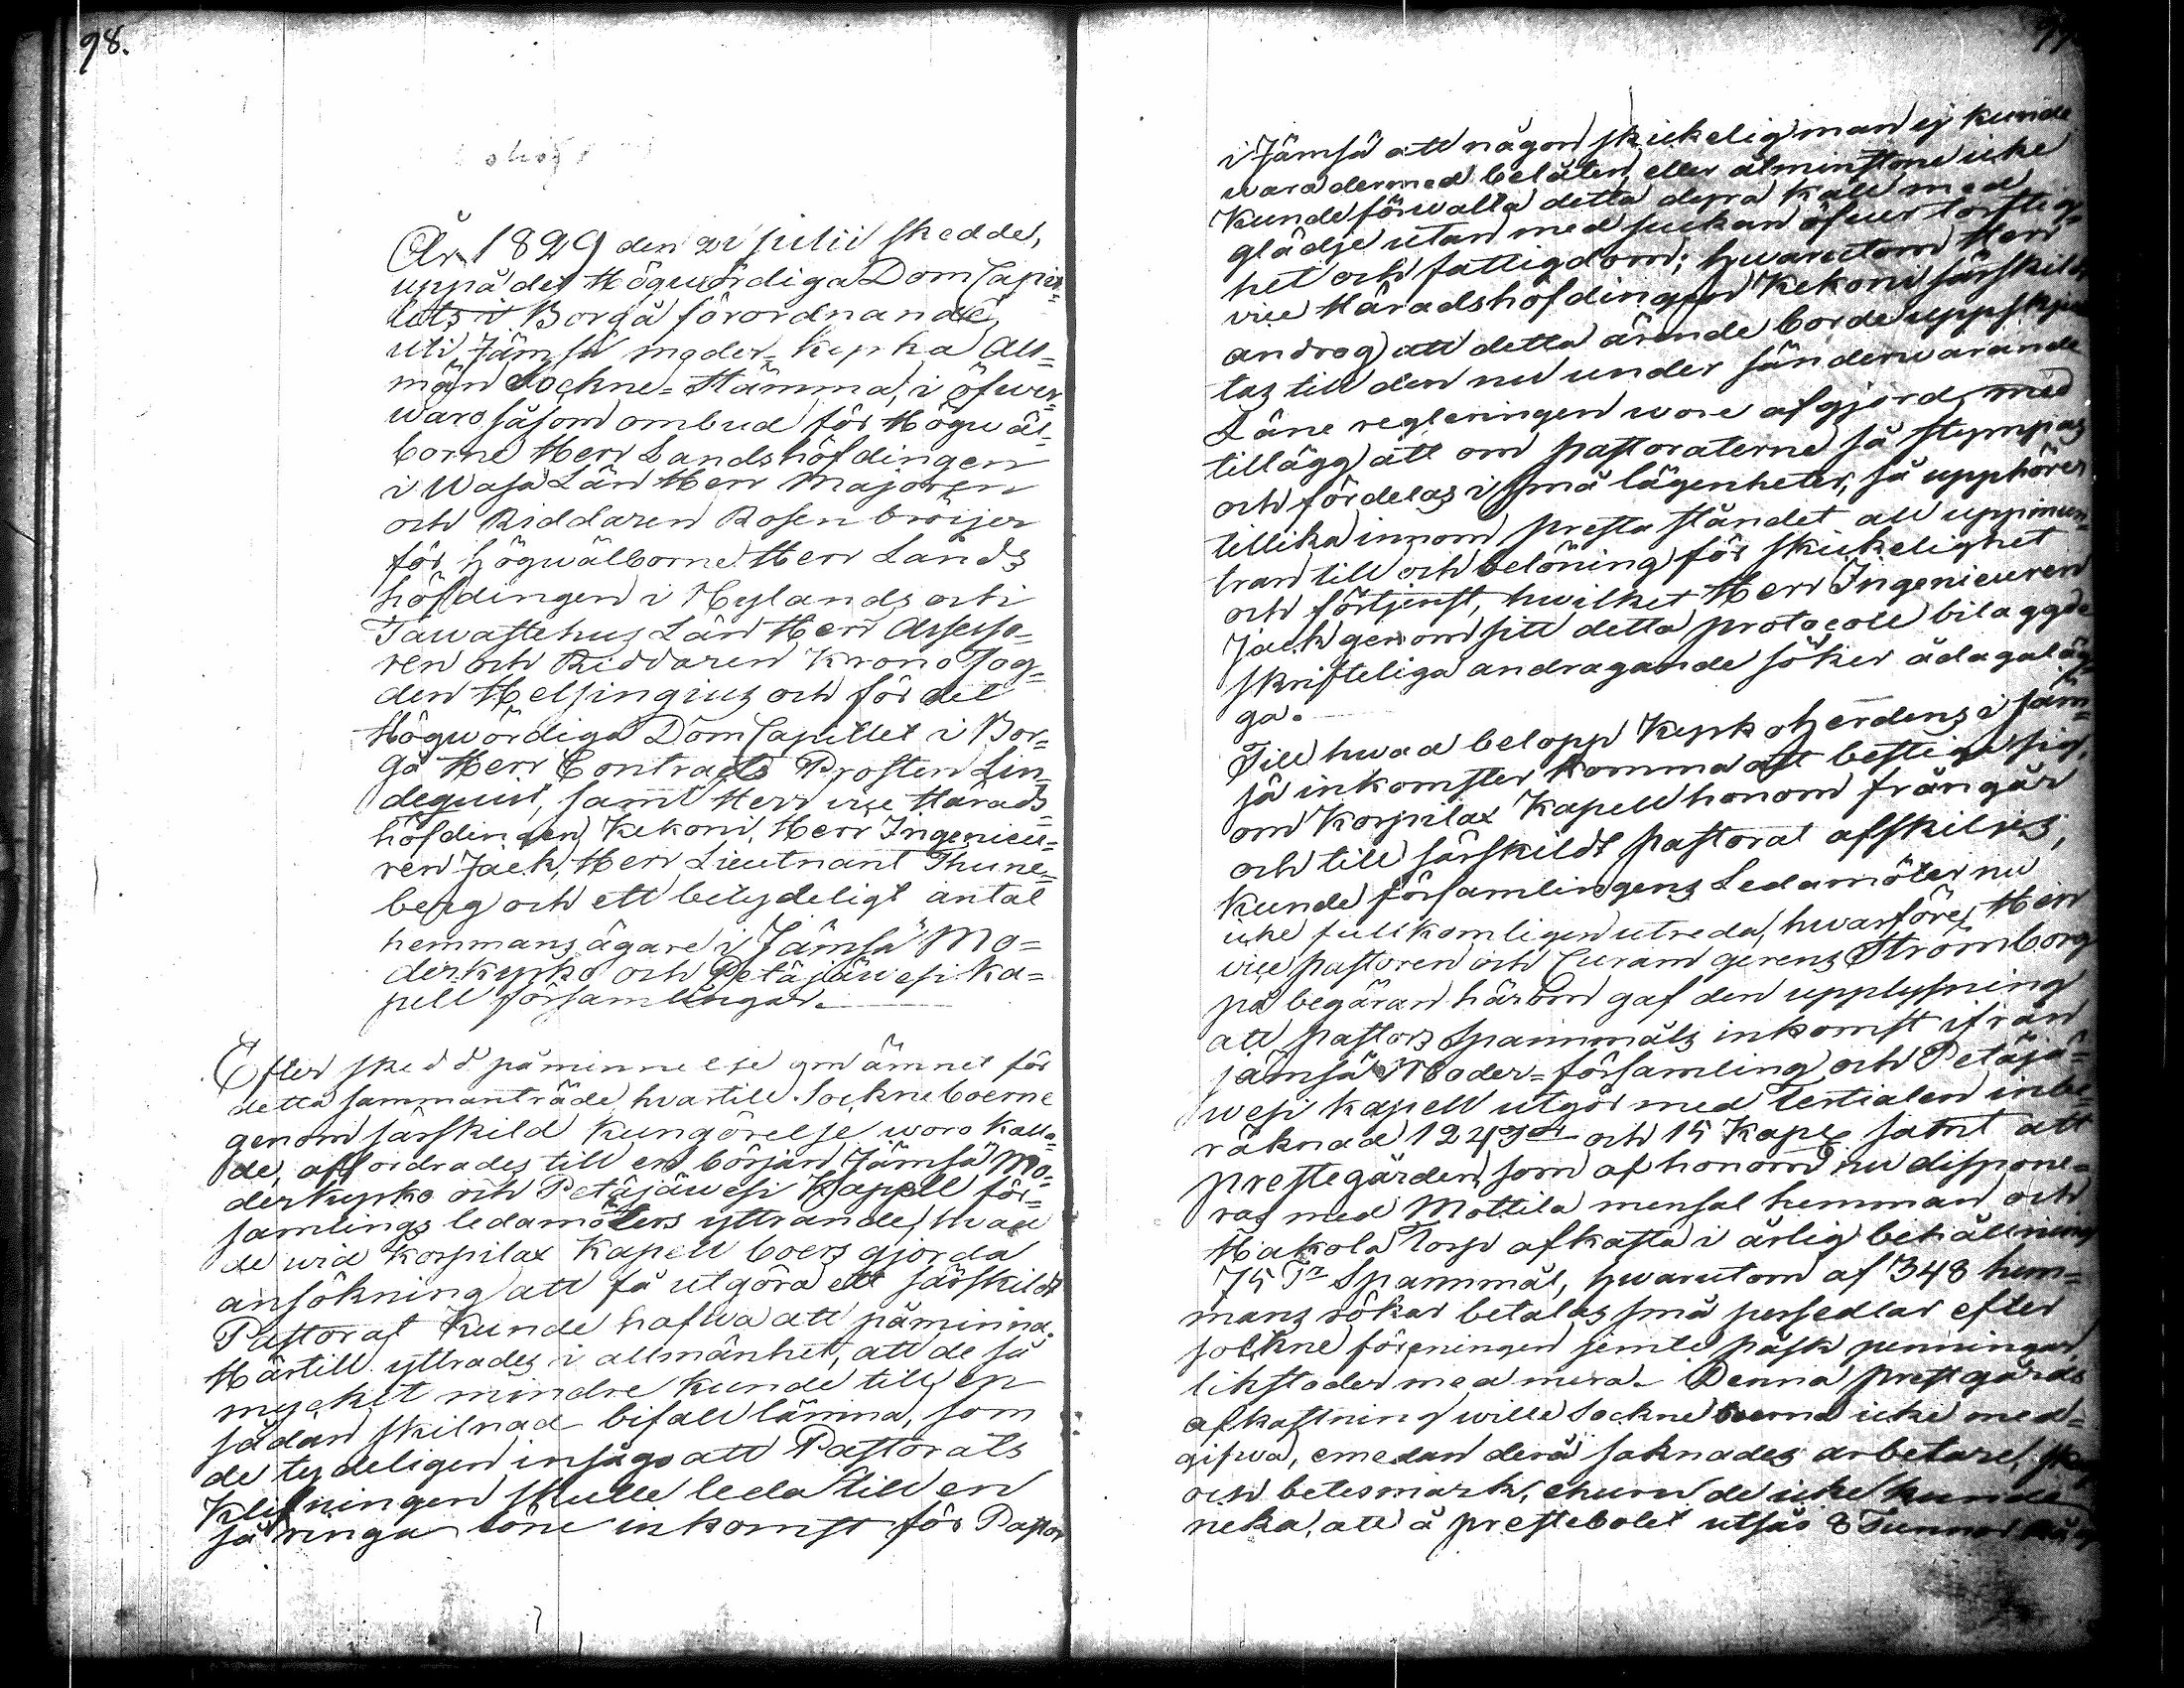 98.
År 1829 den 21 Julii skedde,
uppå det Högwördiga Dom Capit=
lets i Borgå förordnande,
uti Jämsä moder=kyrka All=
män Sockne=Stämma, i öfwer=
waro såsom ombud för Högwäl=
borne Herr Landshöfdingen
i Wasa Län Herr Majoren
och Riddaren Rosenbröijer
för högwälborne Herr Lands
höfdingen i Nylands och
Tawastehus Län Herr Assesso=
ren och Riddaren Kronofog=
den Helsingius och för det
Högwördiga Dom Capitlet i Bor=
gå Herr Contracts Prosten Lin=
dequist, samt Herr vice Härads
höfdingen Kekoni, Herr Ingenieu=
ren Jack, Herr Lieutnant Thune=
berg och ett betydeligt antal
hemmansägare i Jämsä Mo=
derkyrko och Petäjäwesi Ka=
pell församlingar.
Efter skedd påminnelse om ämnet för
detta sammanträde, hvartill Sockneboerne
genom särskild kungörelse woro kalla=
de, affordrades till en början Jämsä Mo=
derkyrko och Petäjäwesi Kapell för=
samlings ledamöters yttrande, hvad
de wid Korpilax Kapell boers gjorda
ansökning att få utgöra ett särskildt
Pastorat kunde hafwa att påminna.
Härtill yttrades i allmänhet, att de så
mycket mindre kunde till en
sådan skilnad bifall lämna, som
de tydeligen insågo att Pastorats
Klyfningen skulle leda till en
så ringa löne inkomst för Pastor
i Jämsä att någon skickelig man ej kunde
wara dermed belåten, eller åtminstone icke
kunde förwalta detta dyra kall med
glädje utan med suckan öfwer torftig=
het och fattigdom; hwarutom Herr
vice Häradshöfdingen Kekoni särskildt
androg att detta ärende borde uppskju
tas till den nu under händerwarande
Löne regleringen wore afgjord, med
tillägg att om pastoraterne så stympas
och fördelas i små lägenheter, så upphörer
tillika inom presta ståndet all uppmun=
tran till och belöning för skickelighet
och förtjenst, hwilket Herr Ingenieuren
Jack genom sitt detta protocoll bilaggde
skrifteliga andragande söker ådagaläg=
ga.
Till hwad belopp Kyrkoherdens i Jäm=
sä inkomster komma att bestiga sig,
om Korpilax Kapell honom frångår
och till särskildt pastorat afskiljes,
kunde församlingens Ledamöter nu
icke fullkomligen utreda, hwarföre Herr
vice pastoren och Curam gerens Strömborg
på begäran härom gaf den upplysning
att pastors Spannmåls inkomst ifrån
Jämsä Moder=församling och Petäjä=
wesi Kapell utgör med Tertialen inbe=
räknad 124 och 15 Kapp. samt att
prestegården som af honom nu dispone=
ras med Mottila mensal hemman och
Hakola Torp afkasta i årlig behållning
75 Tr Spannmål, hwarutom af 348 hem=
mans rökar betalas små persedlar efter
sockne föreningen jemte påsk penningar,
likstoder med mera. Denna prestgårds
afkastning wille Sockneboerna icke med=
gifwa, emedan derå saknades arbetare,
och betesmark, ehuru de icke kunde
neka, att å prestebolet utsås 8 Tunnor